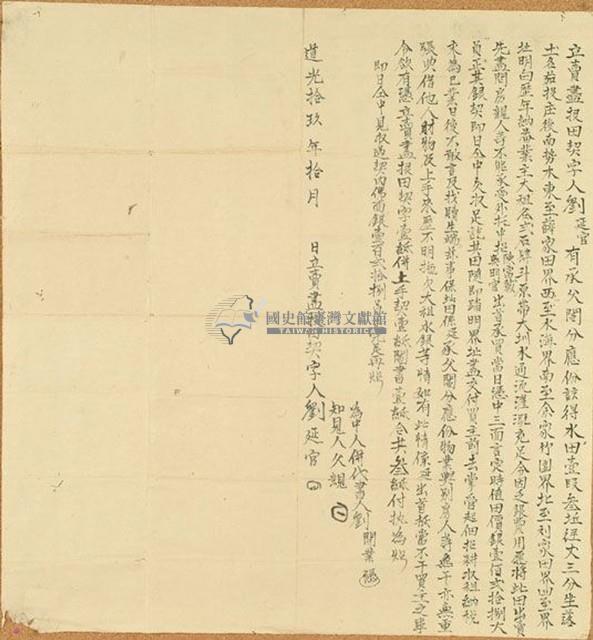 立賣盡根田契字人劉延官有承父鬮分應份該得水田壹段叁坵經丈三分生落
土名茄投庄後南勢水東至薛家田界西至水溝界南至余家竹圍界北至利家田界四至界
址明白歷年納番業主大租谷弍石肆斗原帶大圳水通流灌溉充足今因乏銀費用愿將此田出賣
先盡問房親人等不能承受外托中招陳富教吳明官出首承買當日憑中三面言定時值田價銀壹佰弍拾捌大
員正其銀契即日仝中交收足訖其田隨即踏明界址盡交付買主前去掌管起佃招耕收租納稅
永為己業日後不敢言及找贖生端滋事保此田係是承父鬮分應份物業與別房人等無干亦無重
張典借他人財物及上手來歷不明拖欠大租水銀等情如有此情係延出首抵當不干買主之事
今欲有憑立賣盡根田契字壹紙併上手契壹紙鬮書壹紙合共叁紙付执為炤
即日仝中見收過契內佛面銀壹百弍拾捌員完足再炤
為中人併代書人劉開業
知見人父親
道光拾玖年拾月 日立賣盡根田契字人劉延官
國史館臺灣文獻館
TAIWAN HISTORICA